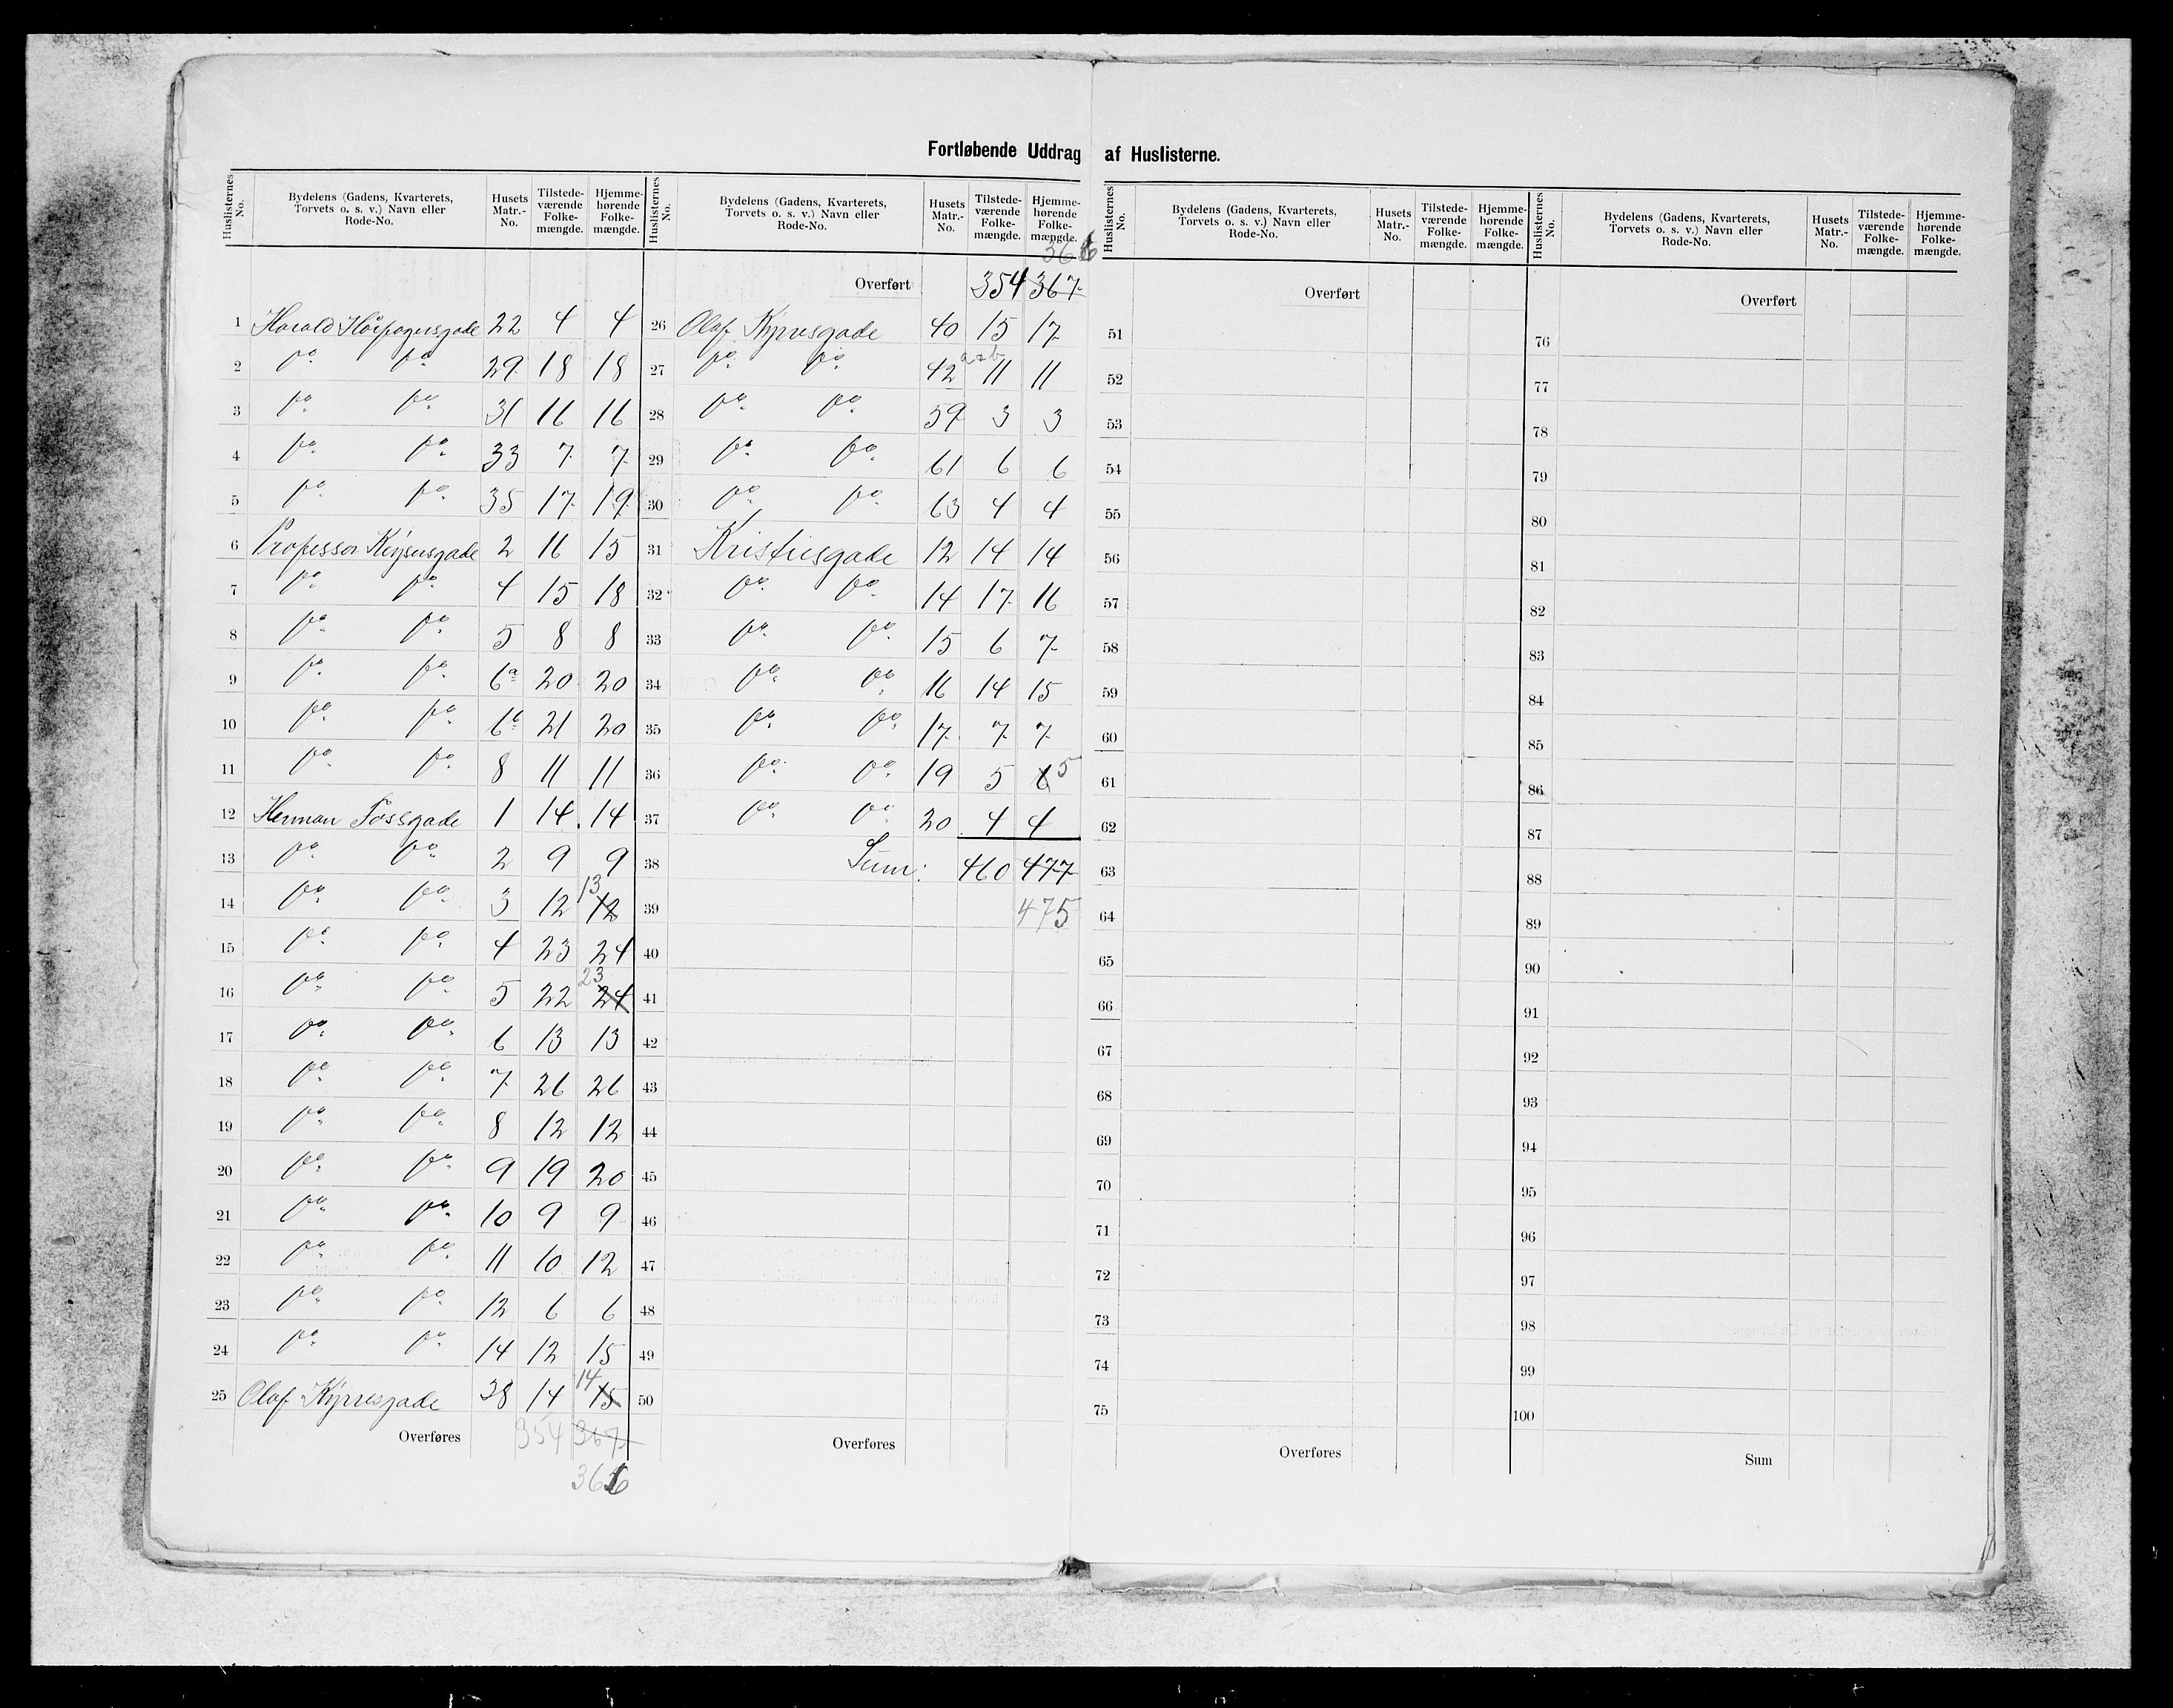 Fortløbende Uddrag af Huslisterne.
Huslisternes No. | Bydelens (Gadens, Kvarterets, Torvets o. s. v.) Navn eller Rode-No. | Husets Matr.-No. | Tilstede-værende Folke-mængde. | Hjemme-hørende Folke-mængde.
1 Harald Hårfagersgade 22 4 4
2 do do 29 18 18
3 do do 31 16 16
4 do do 33 7 7
5 do do 35 17 19
6 Professor Keysersgade 2 16 15
7 do do 4 15 18
8 do do 5 8 8
9 do do 6a 20 20
10 do do 6b 21 20
11 do do 8 11 11
12 Herman Fossgade 1 14 14
13 do do 2 9 9
14 do do 3 12 12 13
15 do do 4 23 24
16 do do 5 22 24 23
17 do do 6 13 13
18 do do 7 26 26
19 do do 8 12 12
20 do do 9 19 20
21 do do 10 9 9
22 do do 11 10 12
23 do do 12 6 6
24 do do 14 12 15
25 Olaf Kyrresgade 38 14 15 14
Overføres 354 367
366
Huslisternes No. | Bydelens (Gadens, Kvarterets, Torvets o. s. v.) Navn eller Rode-No. | Husets Matr.-No. | Tilstede-værende Folke-mængde. | Hjemme-hørende Folke-mængde.
366
Overført 354 367
26 Olaf Kyrresgade 40 15 17
27 do do 42 a-b 11 11
28 do do 59 3 3
29 do do 61 6 6
30 do do 63 4 4
31 Kristiesgade 12 14 14
32 do do 14 17 16
33 do do 15 6 7
34 do do 16 14 15
35 do do 17 7 7
36 do do 19 5 6 5
37 do do 20 4 4
38 Sum: 460 477
39 475
40
41
42
43
44
45
46
47
48
49
50
Overføres
Huslisternes No. | Bydelens (Gadens, Kvarterets, Torvets o. s. v.) Navn eller Rode-No. | Husets Matr.-No. | Tilstede-værende Folke-mængde. | Hjemme-hørende Folke-mængde.
Overført
51
52
53
54
55
56
57
58
59
60
61
62
63
64
65
66
67
68
69
70
71
72
73
74
75
Overføres
Huslisternes No. | Bydelens (Gadens, Kvarterets, Torvets o. s. v.) Navn eller Rode-No. | Husets Matr.-No. | Tilstede-værende Folke-mængde. | Hjemme-hørende Folke-mængde.
Overført
76
77
78
79
80
81
82
83
84
85
86
87
88
89
90
91
92
93
94
95
96
97
98
99
100
Sum